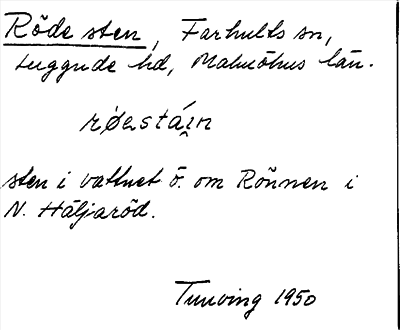 Röde sten, Farhults sn,
Luggude hd, Malmöhus län.
røɛstáɪ̯n
sten i vattnet ö. om Rönnen i
N. Häljaröd.
Tuneving 1950